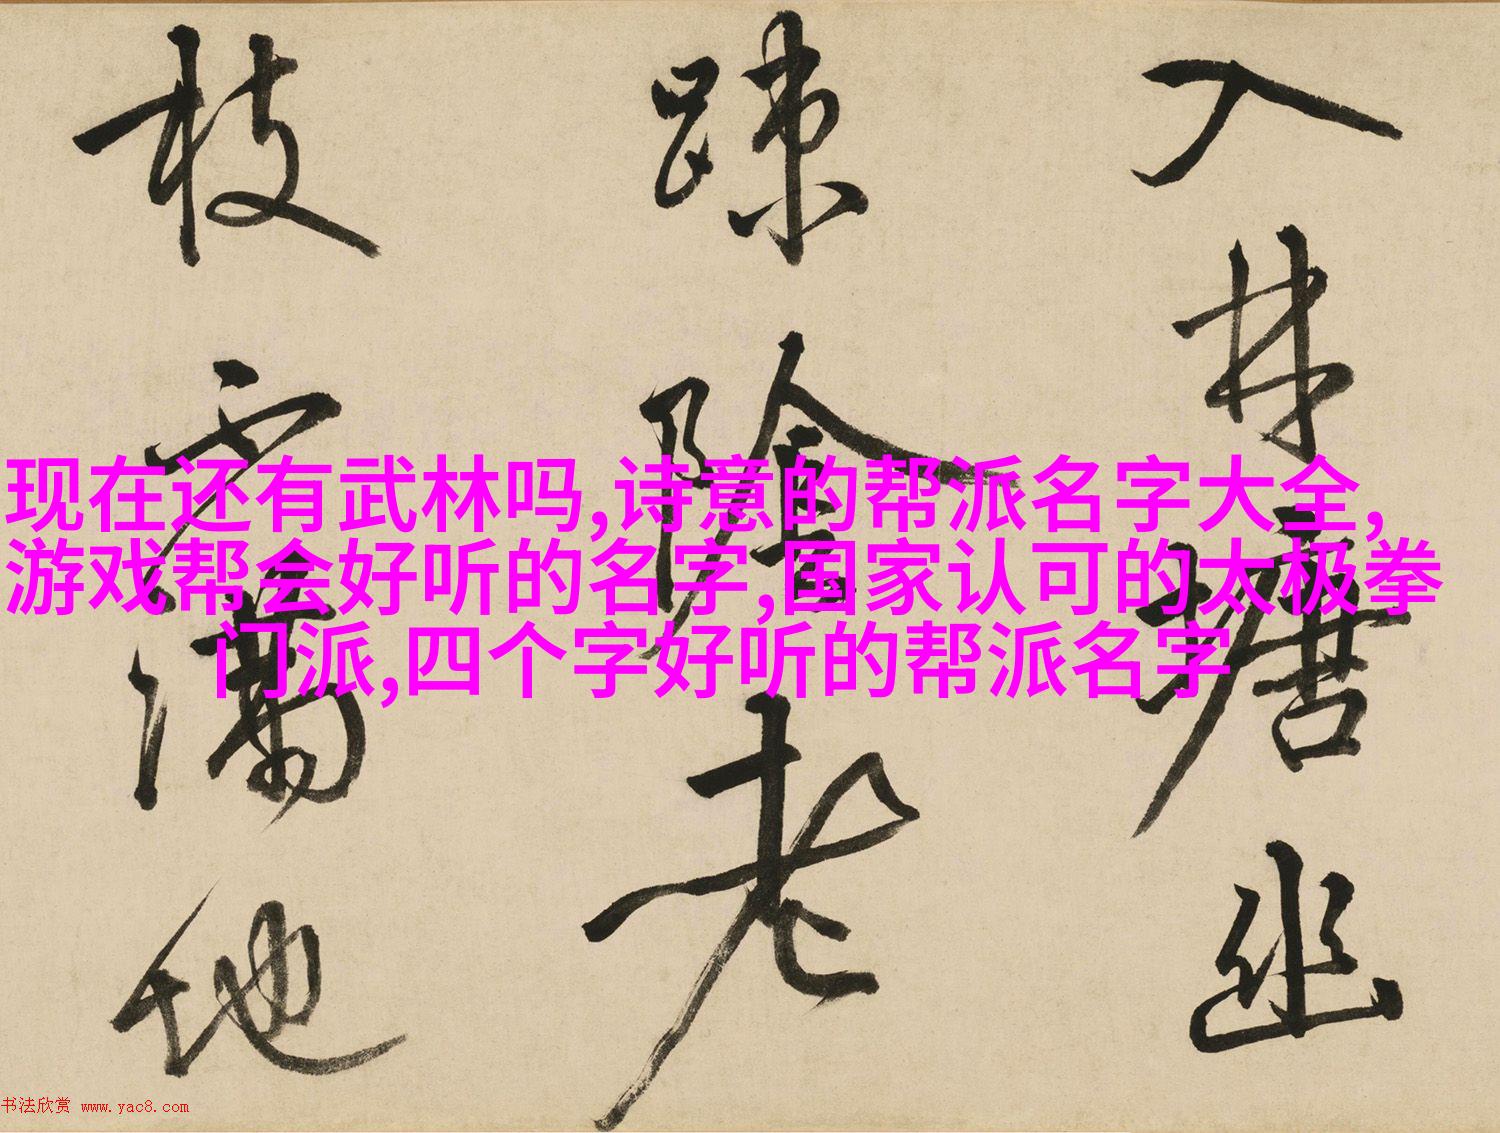 入林塘幽
疎陰老
枝滿地
现在还有武林吗,诗意的帮派名字大全,
游戏帮会好听的名字,国家认可的太极拳
门派,四个字好听的帮派名字
书法欣赏 www.yac8.com